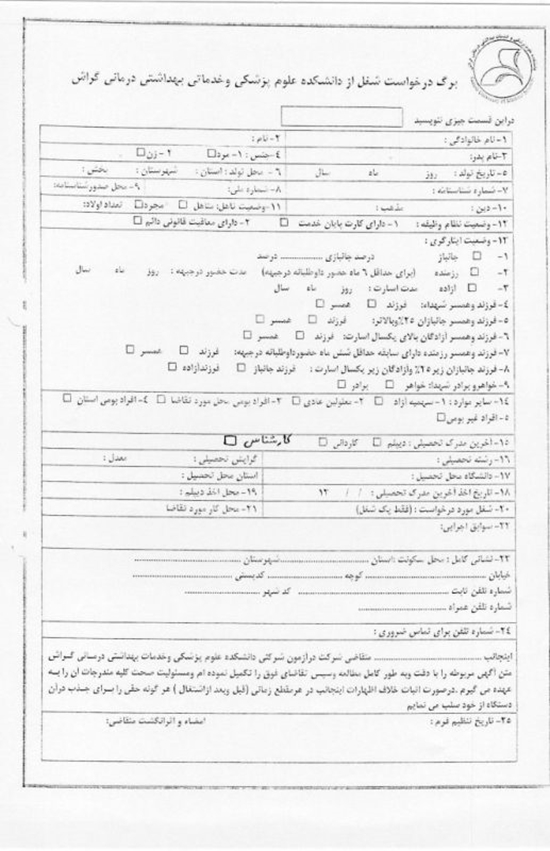 برگ درخواست شغل از دانشکده علوم پزشکی وخدماتی بهداشتی درمانی گراش
دراین قسمت چیزی ننویسید
۱-نام خانوادگی : ۲-نام :
۳-نام پدر: ۴-جنس : ۱-مرد□ ۲-زن□
۵-تاریخ تولد : روز ماه سال ۶- محل تولد : استان : شهرستان : بخش :
۷- شماره شناسنامه : ۸-شماره ملی: ۹-محل صدورشناسنامه:
۱۰-دین : مذهب : ۱۱-وضعیت تاهل: متاهل □ مجرد□ تعداد اولاد:
۱۲-وضعیت نظام وظیفه : ۱-دارای کارت پایان خدمت □ ۲-دارای معافیت قانونی دائم □
۱۳- وضعیت ایثارگری :
۱- □ جانباز درصد جانبازی .................. درصد
۲- □ رزمنده (برای حداقل ۶ ماه حضور داوطلبانه درجبهه) مدت حضور درجبهه : روز ماه سال
۳- □ آزاده مدت اسارت : روز ماه سال
۴-فرزند وهمسر شهداء: فرزند □ همسر □
۵-فرزند وهمسر جانبازان ۲۵٪وبالاتر: فرزند □ همسر □
۶-فرزند وهمسر آزادگان بالای یکسال اسارت: فرزند □ همسر □
۷-فرزند وهمسر رزمنده دارای سابقه حداقل شش ماه حضورداوطلبانه درجبهه: فرزند □ همسر □
۸-فرزند جانبازان زیر۲۵٪ وآزادگان زیر یکسال اسارت : فرزند جانباز □ فرزندآزاده □
۹-خواهرو برادر شهدا: خواهر □ برادر □
۱۴-سایر موارد : ۱-سهمیه آزاد □ ۲-معلولین عادی □ ۳-افراد بومی محل مورد تقاضا □ ۴-افراد بومی استان □
۵-افراد غیر بومی□
۱۵-آخرین مدرک تحصیلی : دیپلم □ کاردانی □ کارشناسی □
۱۶- رشته تحصیلی : گرایش تحصیلی : معدل :
۱۷- دانشگاه محل تحصیل : استان محل تحصیل :
۱۸-تاریخ اخذ آخرین مدرک تحصیلی : / / ۱۳ ۱۹-محل اخذ دیپلم :
۲۰-شغل مورد درخواست : (فقط یک شغل) ۲۱-محل کار مورد تقاضا
۲۲-سوابق اجرایی:
۲۳-نشانی کامل : محل سکونت :استان ..............................شهرستان ..............................
خیابان .............................. کوچه .............................. کدپستی ..............................
شماره تلفن ثابت .............................. کد شهر ..............................
شماره تلفن همراه ..............................
۲۴-شماره تلفن برای تماس ضروری :
اینجانب .............................. متقاضی شرکت درآزمون شرکتی دانشکده علوم پزشکی وخدمات بهداشتی درمانی گراش
متن آگهی مربوطه را با دقت وبه طور کامل مطالعه وسپس تقاضای فوق را تکمیل نموده ام ومسئولیت صحت کلیه مندرجات آن را به
عهده می گیرم .درصورت اثبات خلاف اظهارات اینجانب در هرمقطع زمانی (قبل وبعد ازاشتغال ) هر گونه حقی را برای جذب درآن
دستگاه از خود سلب می نمایم
۲۵-تاریخ تنظیم فرم : امضاء و اثرانگشت متقاضی: